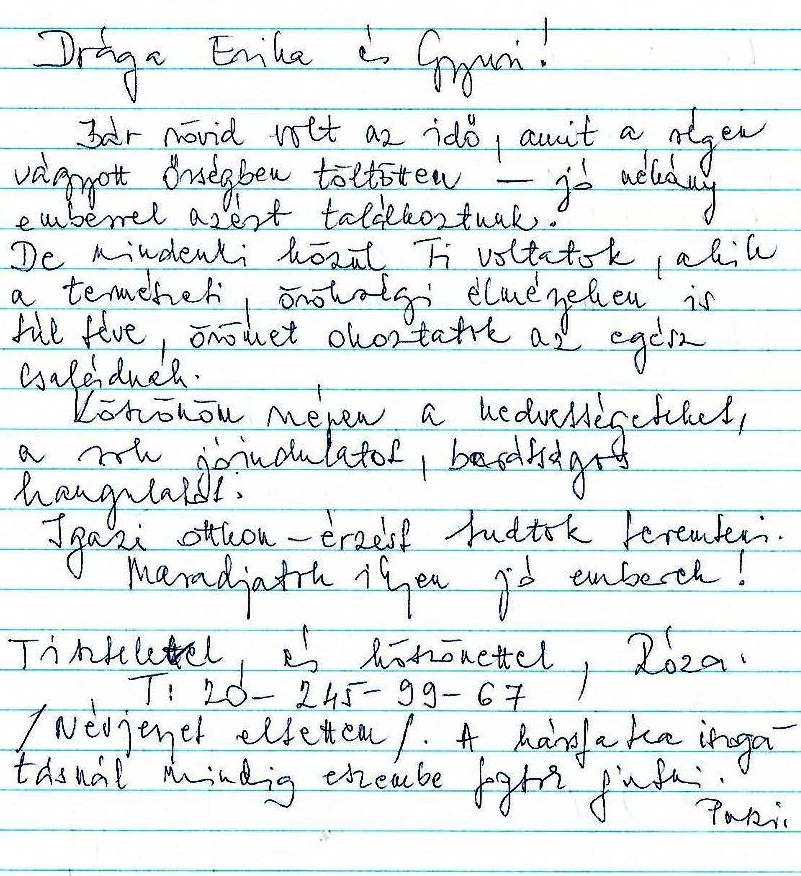 Drága Erika és Gyuri!
Bár rövid volt az idő, amit a régen
vágyott Őrségben töltöttem – jó néhány
emberrel azért találkoztunk.
De mindenki közül Ti voltatok, akik
a természeti, örökségi élményeken is
túl téve, örömet okoztatok az egész
családnak.
Köszönöm szépen a kedvességeteket,
a sok jóindulatot, barátságos
hangulatot.
Igazi otthon-érzést tudtok teremteni.
Maradjatok ilyen jó emberek!
Tisztelettel, és köszönettel, Róza.
T: 20-245-99-67
/Névjegyet eltettem/. A hársfa tea iszoga-
tásnál mindig eszembe fogtok jutni.